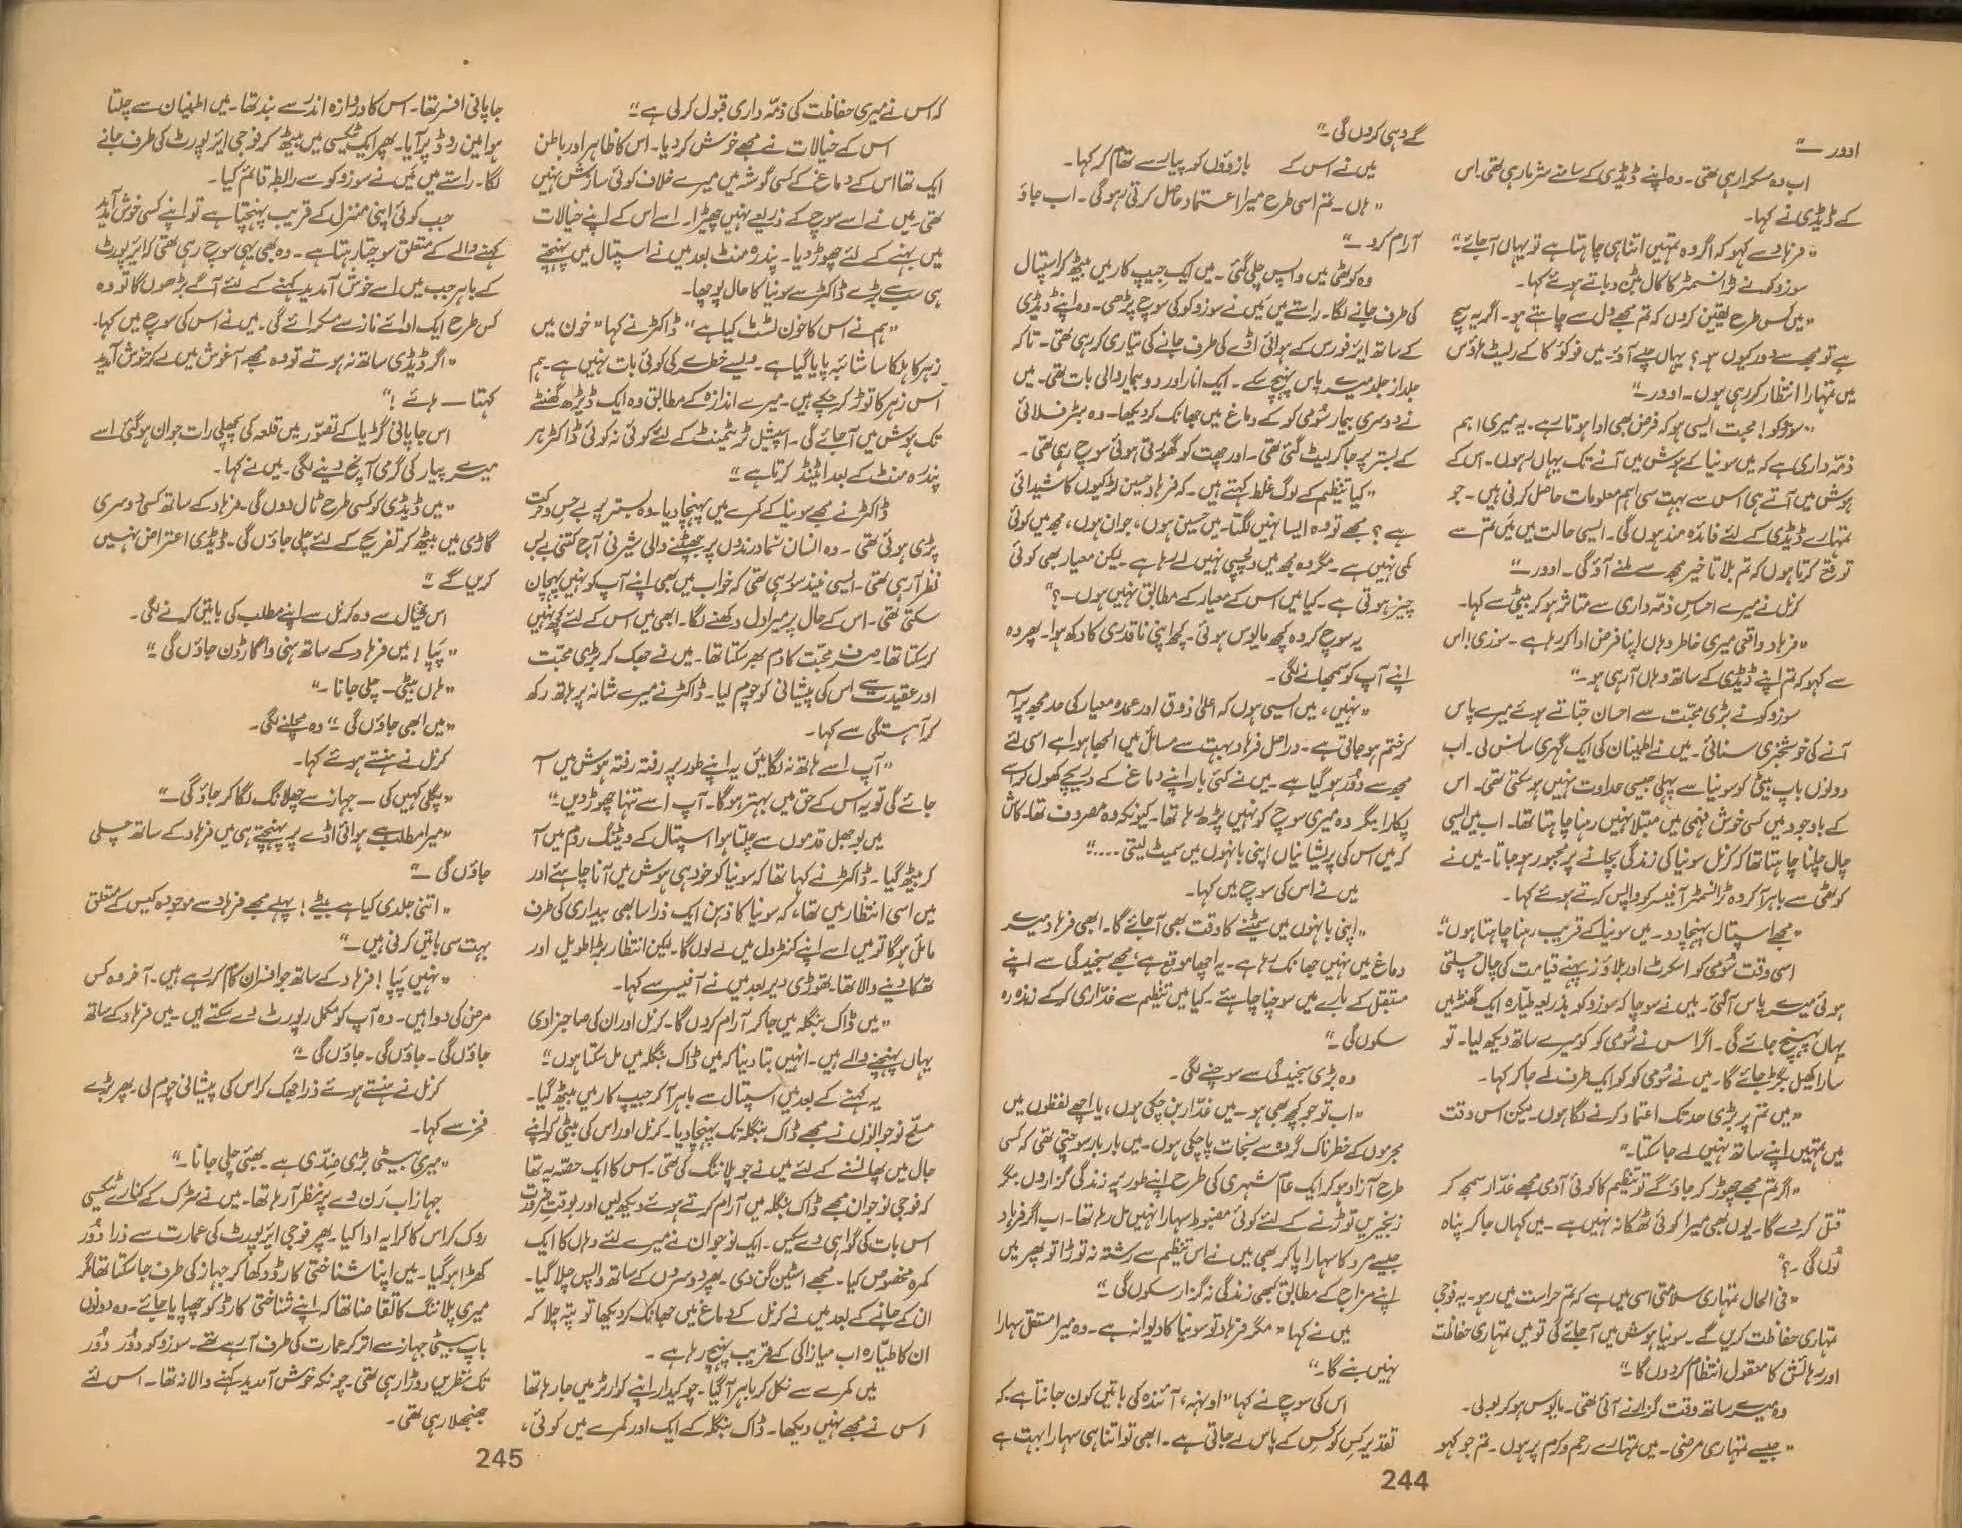 اوور —"
اب وہ مسکرا رہی تھی۔ وہ اپنے ڈیڈی کے سامنے شرما رہی تھی۔ اس
کے ڈیڈی نے کہا۔
"فرہاد سے کہو کہ اگر وہ تمہیں اتنا ہی چاہتا ہے تو یہاں آ جائے"
سوزوکو نے ٹرانسمٹر کا کال بٹن دباتے ہوئے کہا۔
"میں کس طرح یقین کروں کہ تم مجھے دل سے چاہتے ہو۔ اگر یہ سچ
ہے تو مجھ سے دور کیوں ہو؟ یہاں چلے آؤ۔ میں فوکو کا کے ریسٹ ہاؤس
میں تمہارا انتظار کر رہی ہوں۔ اوور—"
"سوزوکو! محبت ایسی ہو کہ فرض بھی ادا ہوتا ہے۔ یہ میری اہم
ذمّہ داری ہے کہ میں سونیا کے ہوش میں آنے تک یہاں رہوں۔ اس کے
ہوش میں آتے ہی اس سے بہت سی اہم معلومات حاصل کرنی ہیں۔ جو
تمہارے ڈیڈی کے لئے فائدہ مند ہوں گی۔ ایسی حالت میں میں تم سے
توقع کرتا ہوں کہ تم بلا تاخیر مجھ سے ملنے آؤ گی۔ اوور—"
کرنل نے میرے احساسِ ذمّہ داری سے متاثر ہو کر بیٹی سے کہا۔
"فرہاد واقعی میری خاطر وہاں اپنا فرض ادا کر رہا ہے۔ سوزی! اس
سے کہو کہ تم اپنے ڈیڈی کے ساتھ وہاں آ رہی ہو—"
سوزوکو نے بڑی محبّت سے احسان جتاتے ہوئے میرے پاس
آنے کی خوشخبری سنائی۔ میں نے اطمینان کی ایک گہری سانس لی۔ اب
دونوں باپ بیٹی کو سونیا سے پہلی جیسی عداوت نہیں ہو سکتی تھی۔ اس
کے باوجود میں کسی خوش فہمی میں مبتلا نہیں رہنا چاہتا تھا۔ اب میں ایسی
چال چلنا چاہتا تھا کہ کرنل سونیا کی زندگی بچانے پر مجبور ہو جاتا۔ میں نے
کوٹھی سے باہر آ کر وہ ٹرانسمٹر آفیسر کو واپس کرتے ہوئے کہا۔
"مجھے اسپتال پہنچا دو۔ میں سونیا کے قریب رہنا چاہتا ہوں"
اسی وقت شومی کو اسکرٹ اور بلاؤز پہنے قیامت کی چال چلتی
ہوئی میرے پاس آ گئی۔ میں نے سوچا کہ سوزوکو بذریعہ طیّارہ ایک گھنٹہ میں
یہاں پہنچ جائے گی۔ اگر اس نے شومی کو کو میرے ساتھ دیکھ لیا۔ تو
سارا کھیل بگڑ جائے گا۔ میں نے شومی کو کو ایک طرف لے جا کر کہا۔
"میں تم پر بڑی حد تک اعتماد کرنے لگا ہوں۔ لیکن اس وقت
میں تمہیں اپنے ساتھ نہیں لے جا سکتا۔"
"اگر تم مجھے چھوڑ کر جاؤ گے تو تنظیم کا کوئی آدمی مجھے غدّار سمجھ کر
قتل کر دے گا۔ یوں بھی میرا کوئی ٹھکانہ نہیں ہے۔ میں کہاں جا کر پناہ
لُوں گی۔؟"
"فی الحال تمہاری سلامتی اسی میں ہے کہ تم حراست میں رہو۔ یہ فوجی
تمہاری حفاظت کریں گے۔ سونیا ہوش میں آ جائے گی تو میں تمہاری حفاظت
اور رہائش کا معقول انتظام کر دوں گا—"
وہ میرے ساتھ وقت گزارنے آئی تھی۔ مایوس ہو کر بولی۔
"جیسے تمہاری مرضی۔ میں تمہارے رحم و کرم پر ہوں۔ تم جو کہو
گے وہی کروں گی—"
میں نے اس کے بازوؤں کو پیار سے تھام کر کہا۔
"ہاں۔ تم اسی طرح میرا اعتماد حاصل کرتی رہو گی۔ اب جاؤ
آرام کرو—"
وہ کوٹھی میں واپس چلی گئی۔ میں ایک جیپ کار میں بیٹھ کر اسپتال
کی طرف جانے لگا۔ راستے میں میں نے سوزوکو کی سوچ پڑھی۔ وہ اپنے ڈیڈی
کے ساتھ ایئر فورس کے ہوائی اڈے کی طرف جانے کی تیاری کر رہی تھی۔ تاکہ
جلد از جلد میرے پاس پہنچ سکے۔ ایک انار اور دو بیمار والی بات تھی۔ میں
نے دوسری بیمار شومی کو کے دماغ میں جھانک کر دیکھا۔ وہ بسترِ فلائی
کے بستر پر جا کر لیٹ گئی تھی۔ اور چھت کو گھورتی ہوئی سوچ رہی تھی۔
"کیا تنظیم کے لوگ غلط کہتے ہیں۔ کہ فرہاد حسین لڑکیوں کا شیدائی
ہے؟ مجھے تو وہ ایسا نہیں لگتا۔ میں حسین ہوں، جوان ہوں، مجھ میں کوئی
کمی نہیں ہے۔ مگر وہ مجھ میں دلچسپی نہیں لے رہا ہے۔ لیکن معیار بھی کوئی
چیز ہوتی ہے۔ کیا میں اس کے معیار کے مطابق نہیں ہوں—؟"
یہ سوچ کر وہ کچھ مایوس ہوئی۔ کچھ اپنی ناقدری کا دکھ ہوا۔ پھر وہ
اپنے آپ کو سمجھانے لگی۔
"نہیں، میں ایسی ہوں کہ اعلیٰ ذوق اور عمدہ معیار کی حد مجھ پر آ
کر ختم ہو جاتی ہے۔ دراصل فرہاد بہت سے مسائل میں الجھا ہوا ہے اسی لئے
مجھ سے دُور ہو گیا ہے۔ میں نے کئی بار اپنے دماغ کے دریچے کھول کر اسے
پکارا مگر وہ میری سوچ کو نہیں پڑھ رہا تھا۔ کیونکہ وہ مصروف تھا۔ کاش
کہ میں اس کی پریشانیاں اپنی بانہوں میں سمیٹ لیتی...."
میں نے اس کی سوچ میں کہا۔
"اپنی بانہوں میں سمیٹنے کا وقت بھی آ جائے گا۔ ابھی فرہاد میرے
دماغ میں نہیں جھانک رہا ہے۔ یہ اچھا موقع ہے، مجھے سنجیدگی سے اپنے
مستقبل کے بارے میں سوچنا چاہئے۔ کیا میں تنظیم سے غدّاری کر کے زندہ رہ
سکوں گی—"
وہ بڑی سنجیدگی سے سوچنے لگی۔
"اب تو جو کچھ بھی ہو۔ میں غدّار بن چکی ہوں، یا اچھے لفظوں میں
مجرموں کے خطرناک گروہ سے نجات پا چکی ہوں۔ میں بار بار سوچتی تھی کہ کسی
طرح آزاد ہو کر ایک عام شہری کی طرح اپنے طور پر زندگی گزاروں مگر
زنجیریں توڑنے کے لئے کوئی مضبوط سہارا نہیں مل رہا تھا۔ اب اگر فرہاد
جیسے مرد کا سہارا پا کر بھی میں نے اس تنظیم سے رشتہ نہ توڑا تو پھر میں
اپنے مزاج کے مطابق کبھی زندگی نہ گزار سکوں گی—"
میں نے کہا "مگر فرہاد تو سونیا کا دیوانہ ہے۔ وہ میرا مستقل سہارا
نہیں بنے گا۔"
اس کی سوچ نے کہا "اونہہ، آئندہ کی باتیں کون جانتا ہے۔ کہ
تقدیر کس کو کس کے پاس لے جاتی ہے۔ ابھی تو اتنا ہی سہارا بہت ہے
244
کہ اس نے میری حفاظت کی ذمّہ داری قبول کر لی ہے"
اس کے خیالات نے مجھے خوش کر دیا۔ اس کا ظاہر اور باطن
ایک تھا اس کے دماغ کے کسی گوشہ میں میرے خلاف کوئی سازش نہیں
تھی۔ میں نے اسے سوچ کے ذریعے نہیں چھیڑا۔ اسے اس کے اپنے خیالات
میں بہنے کے لئے چھوڑ دیا۔ پندرہ منٹ بعد میں نے اسپتال میں پہنچتے
ہی سب سے بڑے ڈاکٹر سے سونیا کا حال پوچھا۔
"ہم نے اس کا خون ٹسٹ کیا ہے" ڈاکٹر نے کہا "خون میں
زہر کا ہلکا سا شائبہ پایا گیا ہے۔ ویسے خطرے کی کوئی بات نہیں ہے۔ ہم
اس زہر کا توڑ کر چکے ہیں۔ میرے اندازہ کے مطابق وہ ایک ڈیڑھ گھنٹے
تک ہوش میں آ جائے گی۔ اسپیشل ٹریٹمنٹ کے لئے کوئی نہ کوئی ڈاکٹر ہر
پندرہ منٹ کے بعد اٹینڈ کرتا ہے"
ڈاکٹر نے مجھے سونیا کے کمرے میں پہنچا دیا۔ وہ بستر پر بے حس و حرکت
پڑی ہوئی تھی۔ وہ انسان نما درندوں پر جھپٹنے والی شیرنی آج کتنی بے بس
نظر آ رہی تھی۔ ایسی نیند سو رہی تھی کہ خواب میں بھی اپنے آپ کو نہیں پہچان
سکتی تھی۔ اس کے حال پر میرا دل دکھنے لگا۔ ابھی میں اس کے لئے کچھ نہیں
کر سکتا تھا۔ صرف محبّت کا دم بھر سکتا تھا۔ میں نے جھک کر بڑی محبّت
اور عقیدت سے اس کی پیشانی کو چوم لیا۔ ڈاکٹر نے میرے شانہ پر ہاتھ رکھ
کر آہستگی سے کہا۔
"آپ اسے ہاتھ نہ لگائیں یہ اپنے طور پر رفتہ رفتہ ہوش میں آ
جائے گی تو یہ اس کے حق میں بہتر ہوگا۔ آپ اسے تنہا چھوڑ دیں"
میں بوجھل قدموں سے چلتا ہوا اسپتال کے ویٹنگ روم میں آ
کر بیٹھ گیا۔ ڈاکٹر نے کہا تھا کہ سونیا کو خود ہی ہوش میں آنا چاہئے اور
میں اسی انتظار میں تھا، کہ سونیا کا ذہن ایک ذرا سا بھی بیداری کی طرف
مائل ہوگا تو میں اسے اپنے کنٹرول میں لے لوں گا۔ لیکن انتظار بڑا طویل اور
تھکا دینے والا تھا۔ تھوڑی دیر بعد میں نے آفیسر سے کہا۔
"میں ڈاک بنگلہ میں جا کر آرام کروں گا۔ کرنل اور ان کی صاحبزادی
یہاں پہنچنے والے ہیں۔ انہیں بتا دینا کہ میں ڈاک بنگلہ میں مل سکتا ہوں"
یہ کہنے کے بعد میں اسپتال سے باہر آ کر جیپ کار میں بیٹھ گیا۔
مسلّح نوجوانوں نے مجھے ڈاک بنگلہ تک پہنچا دیا۔ کرنل اور اس کی بیٹی کو اپنے
جال میں پھانسنے کے لئے میں نے جو پلاننگ کی تھی۔ اس کا ایک حصّہ یہ تھا
کہ فوجی نوجوان مجھے ڈاک بنگلہ میں آرام کرتے ہوئے دیکھ لیں اور بوقتِ ضرورت
اس بات کی گواہی دے سکیں۔ ایک نوجوان نے میرے لئے وہاں کا ایک
کمرہ مخصوص کیا۔ مجھے اسٹین گن دی۔ پھر دوسروں کے ساتھ واپس چلا گیا۔
ان کے جانے کے بعد میں نے کرنل کے دماغ میں جھانک کر دیکھا تو پتہ چلا کہ
ان کا طیّارہ اب میازاکی کے قریب پہنچ رہا ہے۔
میں کمرے سے نکل کر باہر آ گیا۔ چوکیدار اپنے کوارٹر میں جا رہا تھا
اس نے مجھے نہیں دیکھا۔ ڈاک بنگلہ کے ایک اور کمرے میں کوئی،
جاپانی افسر تھا۔ اس کا دروازہ اندر سے بند تھا۔ میں اطمینان سے چلتا
ہوا مین روڈ پر آیا۔ پھر ایک ٹیکسی میں بیٹھ کر فوجی ایئر پورٹ کی طرف جانے
لگا۔ راستے میں میں نے سوزوکو سے رابطہ قائم کیا۔
جب کوئی اپنی منزل کے قریب پہنچتا ہے تو اپنے کسی خوش آمدید
کہنے والے کے متعلق سوچتا رہتا ہے۔ وہ بھی یہی سوچ رہی تھی کہ ایئر پورٹ
کے باہر جب میں اسے خوش آمدید کہنے کے لئے آگے بڑھوں گا تو وہ
کس طرح ایک ادائے ناز سے مسکرائے گی۔ میں نے اس کی سوچ میں کہا۔
"اگر ڈیڈی ساتھ نہ ہوتے تو وہ مجھے آغوش میں لے کر خوش آمدید
کہتا — ہائے!"
اس جاپانی گڑیا کے تصوّر میں قلعہ کی پچھلی رات جوان ہو گئی اسے
میرے پیار کی گرمی آنچ دینے لگی۔ میں نے کہا۔
"میں ڈیڈی کو کسی طرح ٹال دوں گی۔ فرہاد کے ساتھ کسی دوسری
گاڑی میں بیٹھ کر تفریح کے لئے چلی جاؤں گی۔ ڈیڈی اعتراض نہیں
کریں گے"
اس خیال سے وہ کرنل سے اپنے مطلب کی باتیں کرنے لگی۔
"پاپا! میں فرہاد کے ساتھ ہنی واگارڈن جاؤں گی—"
"ہاں بیٹی۔ چلی جانا—"
"میں ابھی جاؤں گی—" وہ مچلنے لگی۔
کرنل نے ہنستے ہوئے کہا۔
"پگلی کہیں کی — جہاز سے چھلانگ لگا کر جاؤ گی—"
"میرا مطلب ہے ہوائی اڈے پر پہنچتے ہی میں فرہاد کے ساتھ چلی
جاؤں گی—"
"اتنی جلدی کیا ہے بیٹے! پہلے مجھے فرہاد سے موجودہ کیس کے متعلق
بہت سی باتیں کرنی ہیں—"
"نہیں پاپا! فرہاد کے ساتھ جو افسران کام کر رہے ہیں۔ آخر وہ کس
مرض کی دوا ہیں۔ وہ آپ کو مکمل رپورٹ دے سکتے ہیں۔ میں فرہاد کے ساتھ
جاؤں گی۔ جاؤں گی۔ جاؤں گی—"
کرنل نے ہنستے ہوئے ذرا جھک کر اس کی پیشانی چوم لی۔ پھر بڑے
فخر سے کہا۔
"میری بیٹی بڑی ضدّی ہے۔ بھئی چلی جانا—"
جہاز اب رَن وے پر نظر آ رہا تھا۔ میں نے سڑک کے کنارے ٹیکسی
روک کر اس کا کرایہ ادا کیا۔ پھر فوجی ایئر پورٹ کی عمارت سے ذرا دُور
کھڑا ہو گیا۔ میں اپنا شناختی کارڈ دکھا کر جہاز کی طرف جا سکتا تھا مگر
میری پلاننگ کا تقاضا تھا کہ اپنے شناختی کارڈ کو چھپایا جائے۔ وہ دونوں
باپ بیٹی جہاز سے اتر کر عمارت کی طرف آ رہے تھے۔ سوزوکو دُور دُور
تک نظریں دوڑا رہی تھی۔ چونکہ خوش آمدید کہنے والا نہ تھا۔ اس لئے
جھنجھلا رہی تھی۔
245